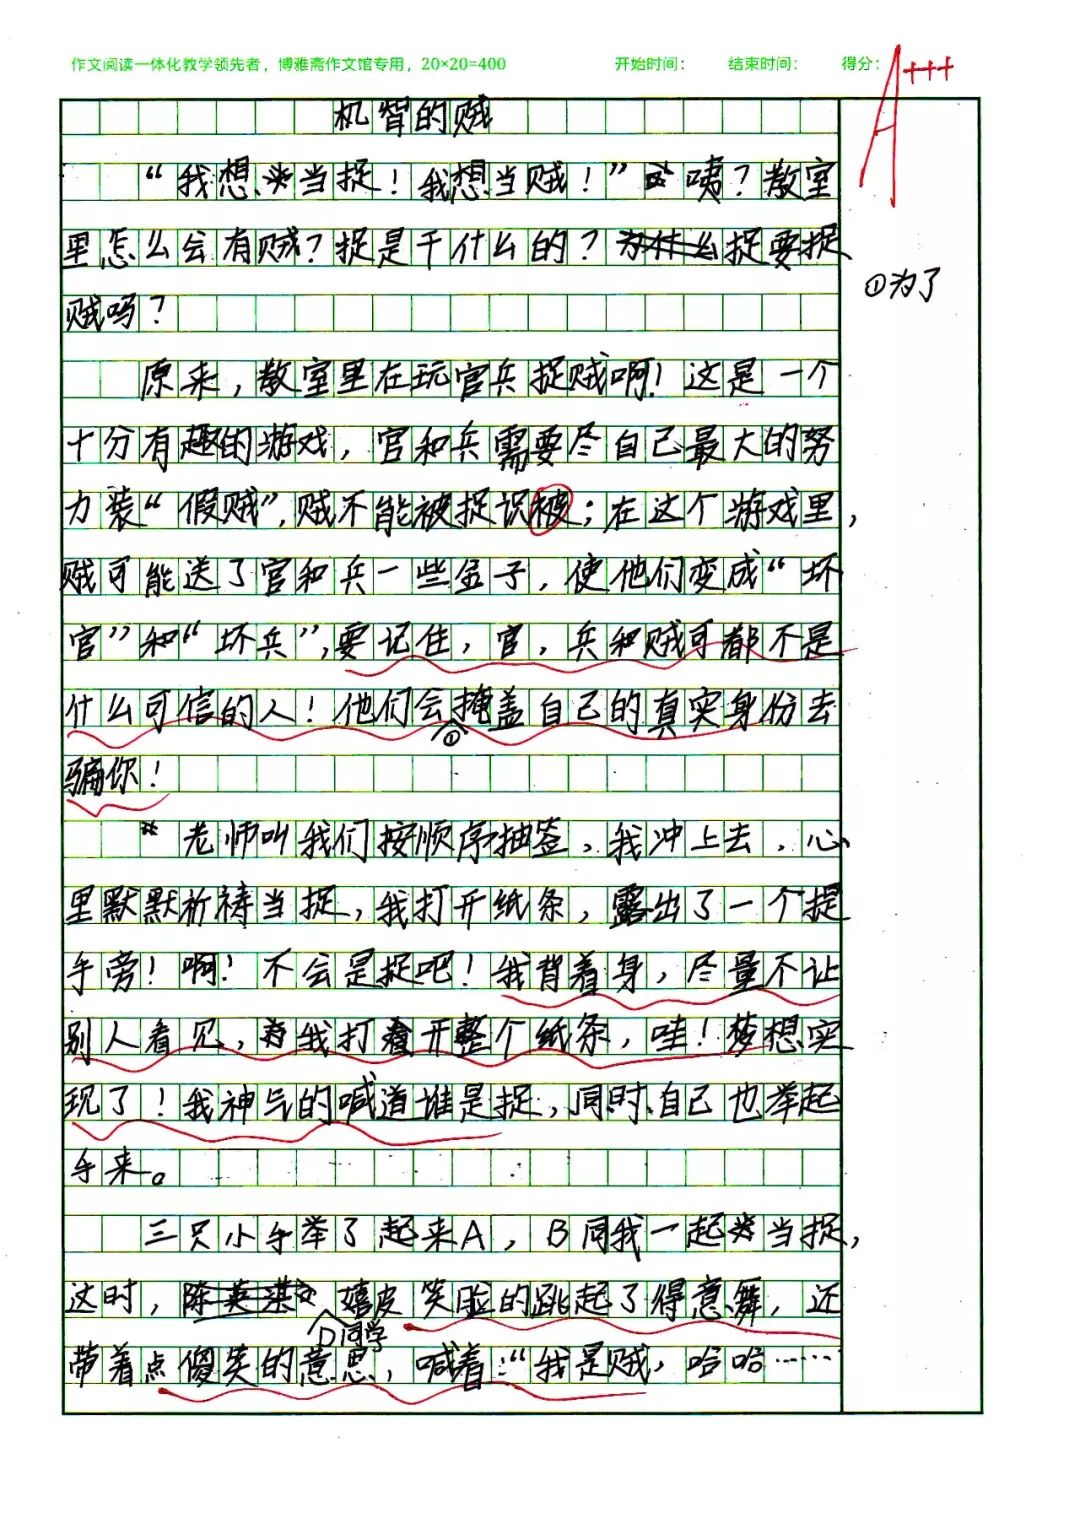 作文阅读一体化教学领先者，博雅斋作文馆专用，20×20=400 开始时间： 结束时间： 得分：
A+++
机智的贼
“我想当捉！我想当贼！”咦？教室
里怎么会有贼？捉是干什么的？捉要捉
贼吗？
①为了
原来，教室里在玩官兵捉贼啊！这是一个
十分有趣的游戏，官和兵需要尽自己最大的努
力装“假贼”，贼不能被捉识被；在这个游戏里，
贼可能送了官和兵一些金子，使他们变成“坏
官”和“坏兵”，要记住，官，兵和贼可都不是
什么可信的人！他们会①掩盖自己的真实身份去
骗你！
老师叫我们按顺序抽签，我冲上去，心
里默默祈祷当捉，我打开纸条，露出了一个提
手旁！啊！不会是捉吧！我背着身，尽量不让
别人看见，我打开整个纸条，哇！梦想实
现了！我神气的喊道谁是捉，同时自己也举起
手来。
三只小手举了起来A，B同我一起当捉，
这时，D同学嬉皮笑脸的跳起了得意舞，还
带着点傻笑的意思，喊着：“我是贼，哈哈……